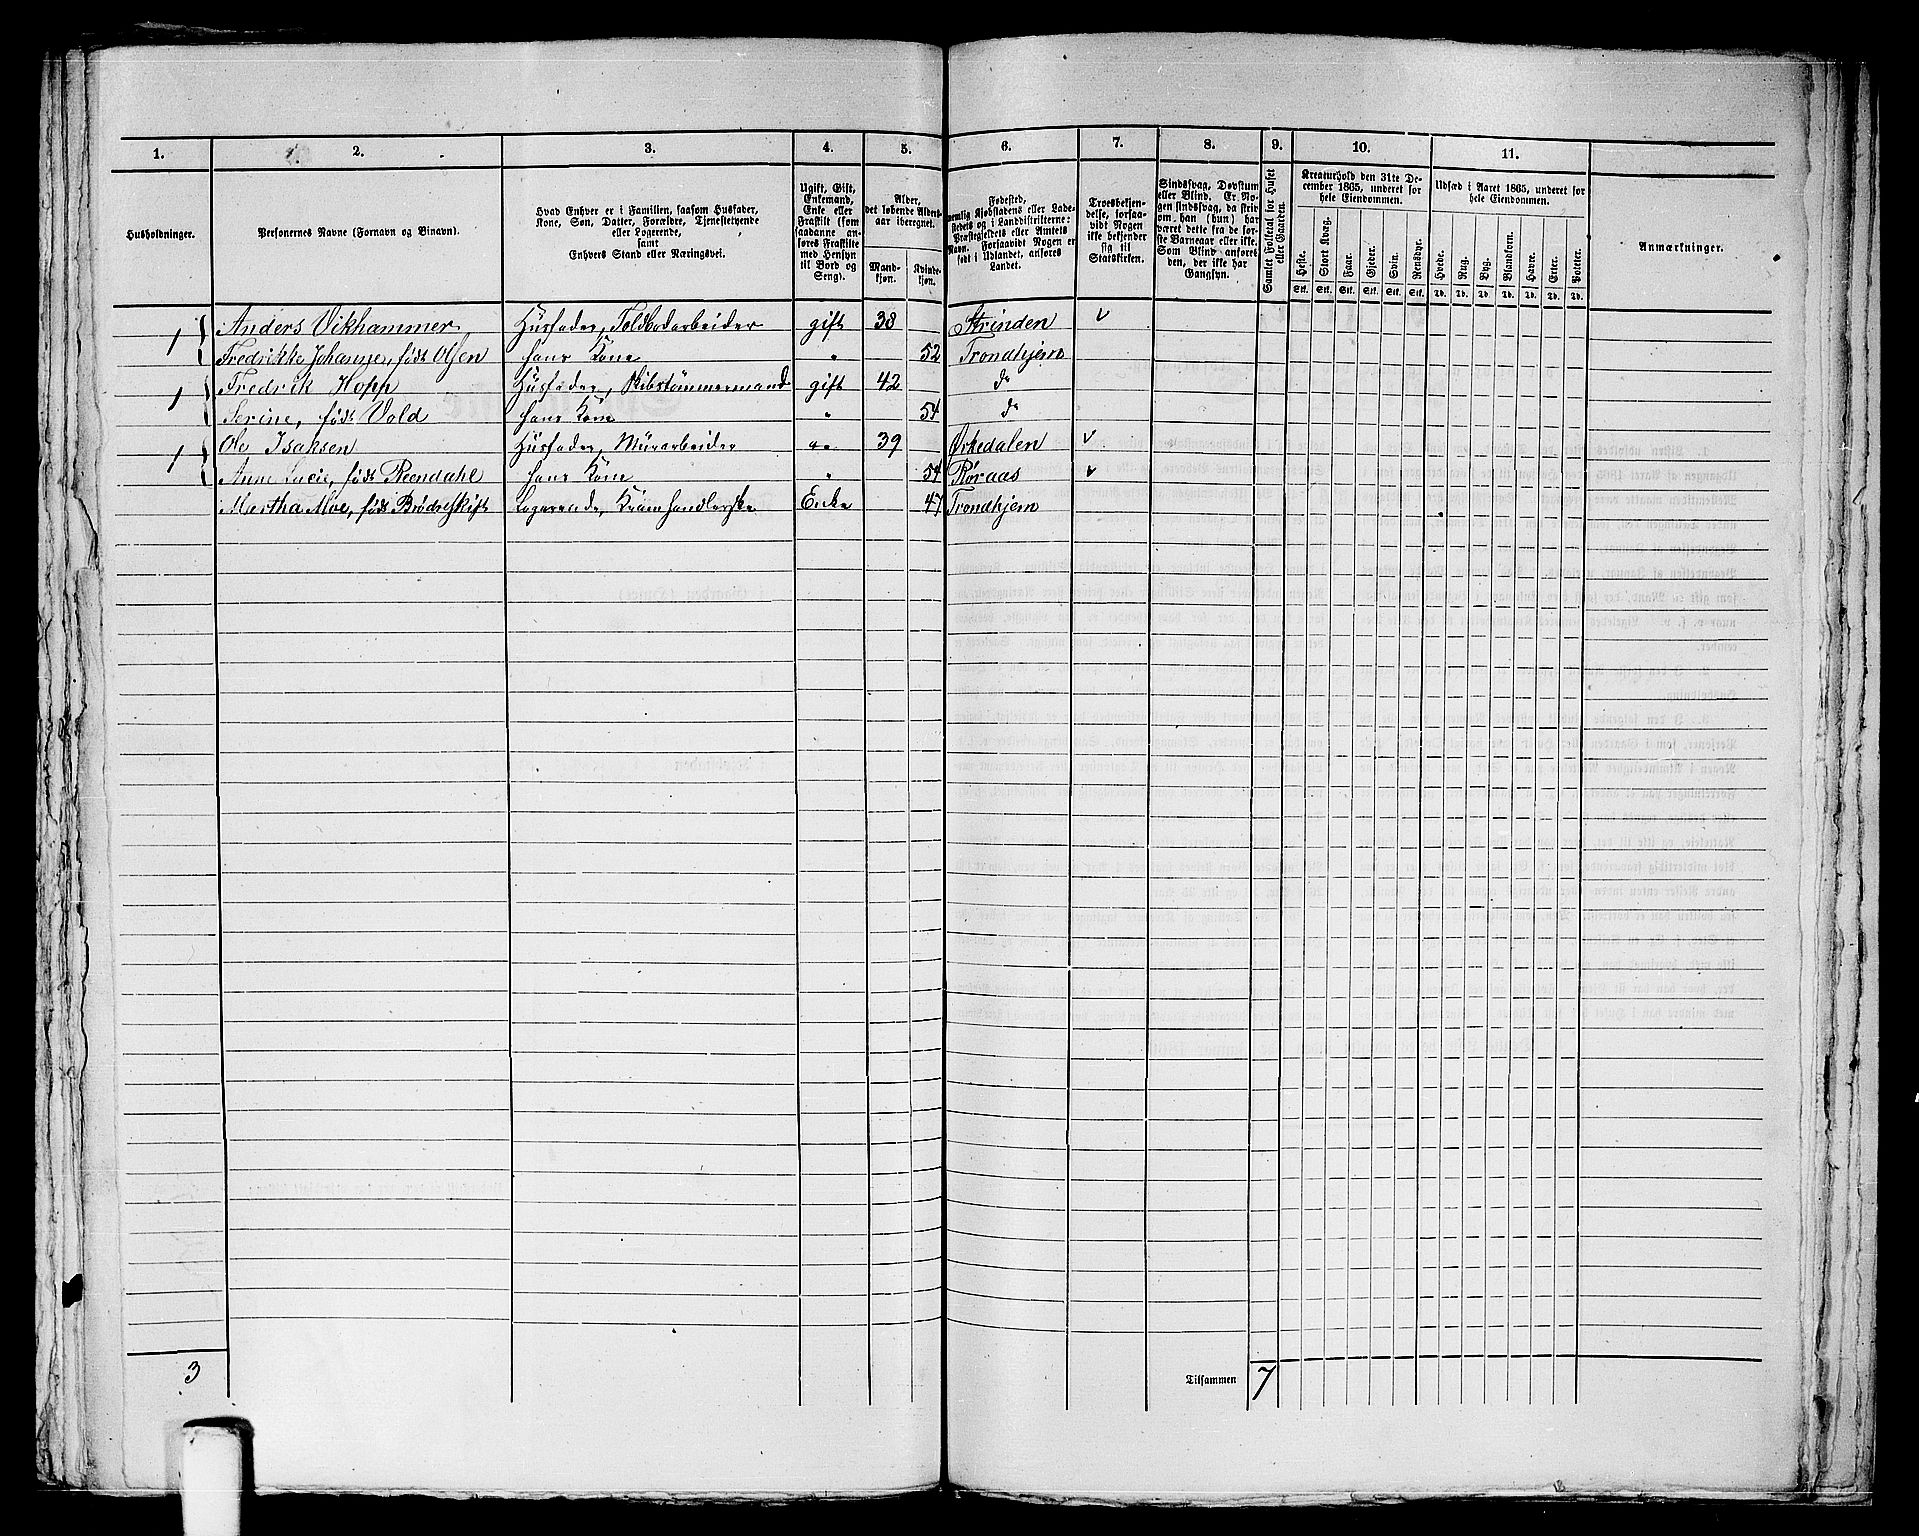 1. 2. 3. 4. 5. 6. 7. 8. 9. 10. 11.
Husholdninger.
Personernes Navne (Fornavn og Binavn).
Hvad Enhver er i Familien, saasom Husfader,
Kone, Søn, Datter, Forældre, Tjenestetyende
eller Logerende,
samt
Enhvers Stand eller Næringsvei.
Ugift, Gift,
Enkemand,
Enke eller
Fraskilt (som
saadanne an-
føres Fraskilte
med Hensyn
til Bord og
Seng).
Alder,
det løbende Alders-
aar iberegnet.
Mand-
kjøn.
Kvinde-
kjøn.
Fødested,
nemlig Kjøbstadens eller Lade-
stedets og i Landdistrikterne:
Præstegjeldets eller Amtets
Navn. Forsaavidt Nogen er
født i Udlandet, anføres
Landet.
Troesbekjen-
delse, forsaa-
vidt Nogen
ikke bekjender
sig til
Statskirken.
Sindssvag, Døvstum
eller Blind. Er No-
gen sindssvag, da skriv
om han (hun) har
været dette fra de før-
ste Barneaar eller ikke.
Som Blind anføres
den, der ikke har
Gangsyn.
Samlet Folketal for Huset
eller Gaarden.
Kreaturhold den 31te De-
cember 1865, underet for
hele Eiendommen.
Heste. Stort Kvæg. Faar. Gjeder. Svin. Rensdyr.
Stk. Stk. Stk. Stk. Stk. Stk.
Udsæd i Aaret 1865, underet for
hele Eiendommen.
Hvede. Rug. Byg. Blandkorn. Havre. Erter. Poteter.
Td. Td. Td. Td. Td. Td. Td.
Anmærkninger.
1 Anders Vikhammer Husfader, Toldbodarbeider gift 38 Strinden v
Fredrikke Johanne, født Olsen hans Kone " 52 Trondhjem
1 Fredrik Hopp Husfader, Skibstømmermand gift 42 do
Serine, født Vold hans Kone " 54 do
1 Ole Isaksen Husfader, Murarbeider " 39 Ørkedalen v
Anne Lucie, født Reendahl hans Kone " 54 Røraas v
Martha Moe, født Brødreskift Logerende, Kramhandlerske Enke 47 Trondhjem
3 Tilsammen 7